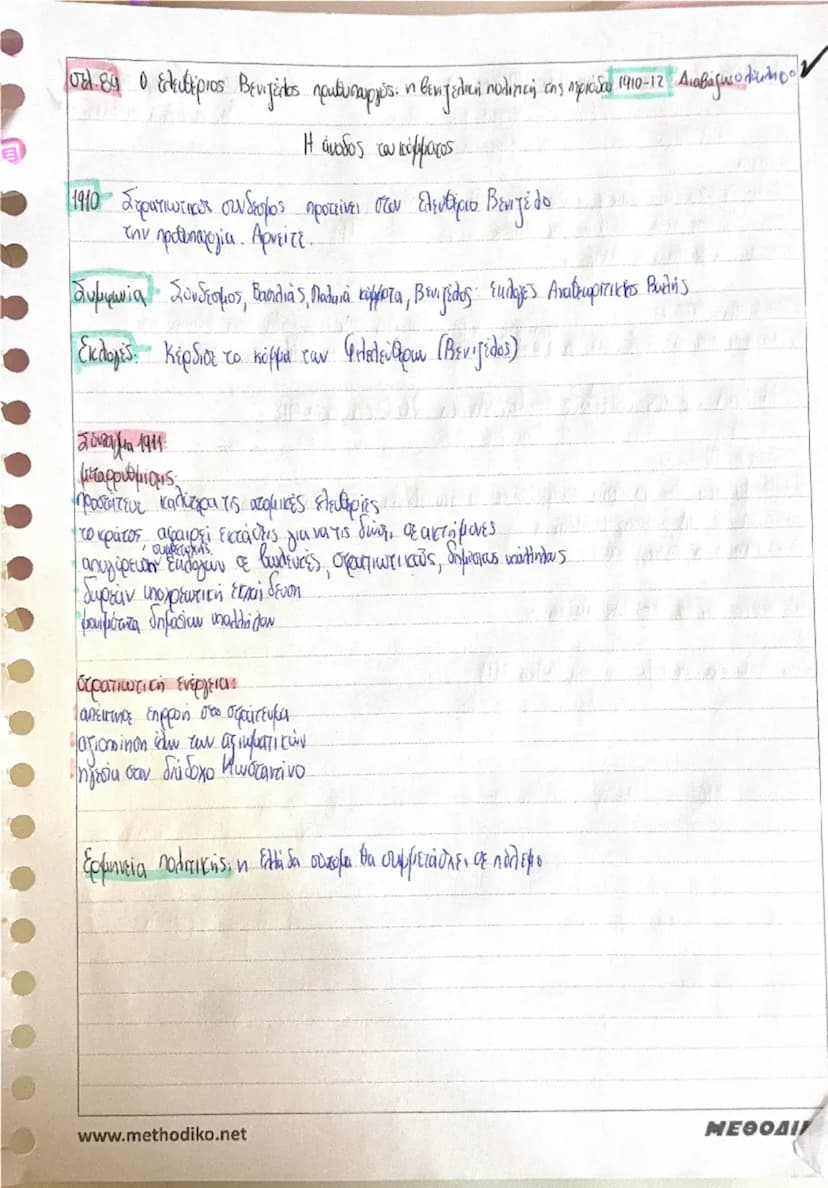 σελ. 89 Ο Ελευθέριος Βενιζέλος πρωθυπουργός: η βενιζελική πολιτική της περιόδου 1910-12
Η άνοδος του κόμματος
1910 Στρατιωτικός σύνδεσμος προτείνει στον Ελευθέριο Βενιζέλο
την πρωθυπουργία. Αρνείτε.
Συμφωνία: Σύνδεσμος, Βασιλιάς, Παλαιά κόμματα, Βενιζέλος: Εκλογές Αναθεωρητικής Βουλής
Εκλογές: Κέρδισε το κόμμα των Φιλελεύθερων (Βενιζέλος)
Σύνταγμα 1911
Μεταρρυθμίσεις:
προσάτευε καλύτερα τις ατομικές ελευθερίες
το κράτος αφαιρεί εκτάσεις για να τις δώσει σε ακτήμονες
απαγόρευση συμμετοχής εκλογων σε βουλευτές, στρατιωτικούς, δημόσιους υπάλληλους
δωρεάν υποχρεωτική εκπαίδευση
μονιμότητα δημοσίων υπαλλήλων
Στρατιωτική ενέργεια:
απέκτησε επιρροή στο στράτευμα
αξιοποίηση όλων των αξιωματικών
ηγεσία σον διάδοχο Κωσταντίνο
Ερμηνεία πολιτικής: η Ελλάδα σύντομα θα συμμετάσχει σε πόλεμο
www.methodiko.net
ΜΕΘΟΔΙ